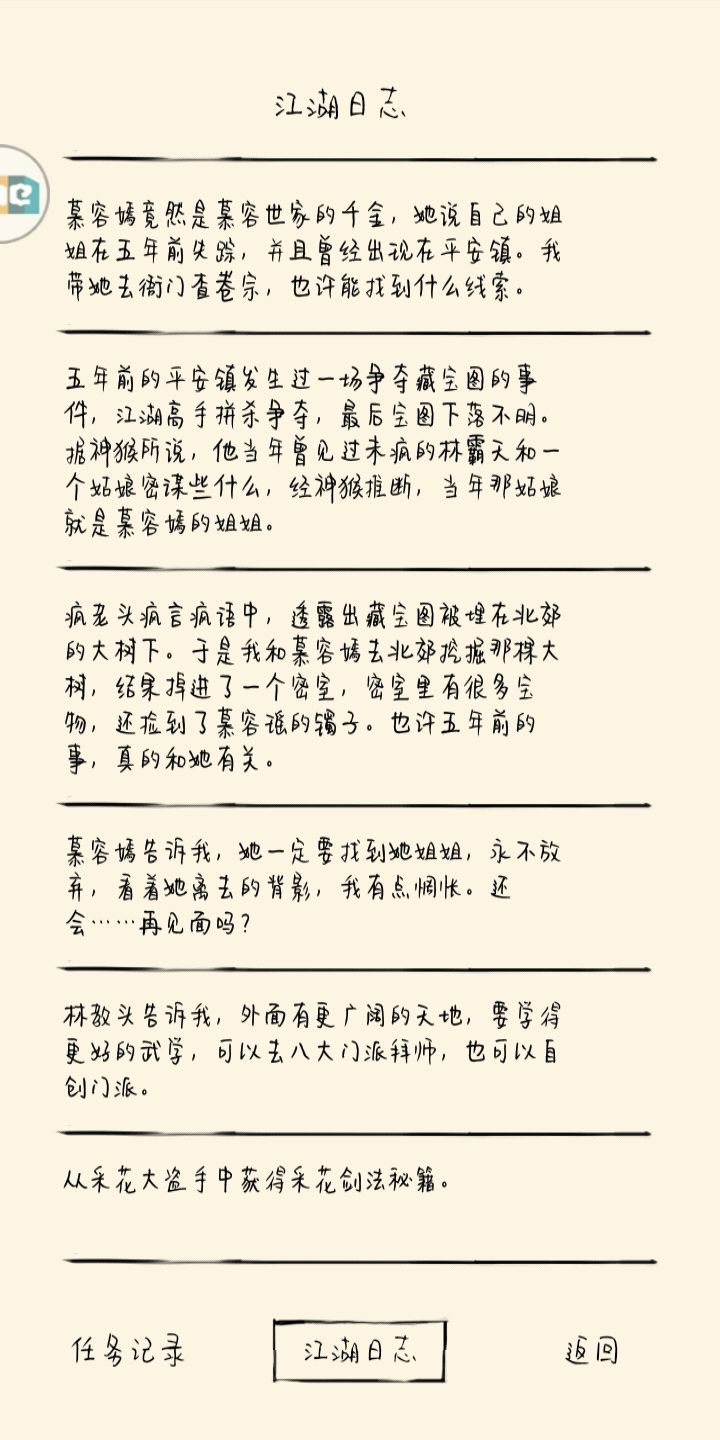 江湖日志
慕容嫣竟然是慕容世家的千金，她说自己的姐
姐在五年前失踪，并且曾经出现在平安镇。我
带她去衙门查卷宗，也许能找到什么线索。
五年前的平安镇发生过一场争夺藏宝图的事
件，江湖高手拼杀争夺，最后宝图下落不明。
据神猴所说，他当年曾见过未疯的林霸天和一
个姑娘密谋些什么，经神猴推断，当年那姑娘
就是慕容嫣的姐姐。
疯老头疯言疯语中，透露出藏宝图被埋在北郊
的大树下。于是我和慕容嫣去北郊挖掘那棵大
树，结果掉进了一个密室，密室里有很多宝
物，还捡到了慕容瑶的镯子。也许五年前的
事，真的和她有关。
慕容嫣告诉我，她一定要找到她姐姐，永不放
弃，看着她离去的背影，我有点惆怅。还
会……再见面吗？
林教头告诉我，外面有更广阔的天地，要学得
更好的武学，可以去八大门派拜师，也可以自
创门派。
从采花大盗手中获得采花剑法秘籍。
任务记录
江湖日志
返回